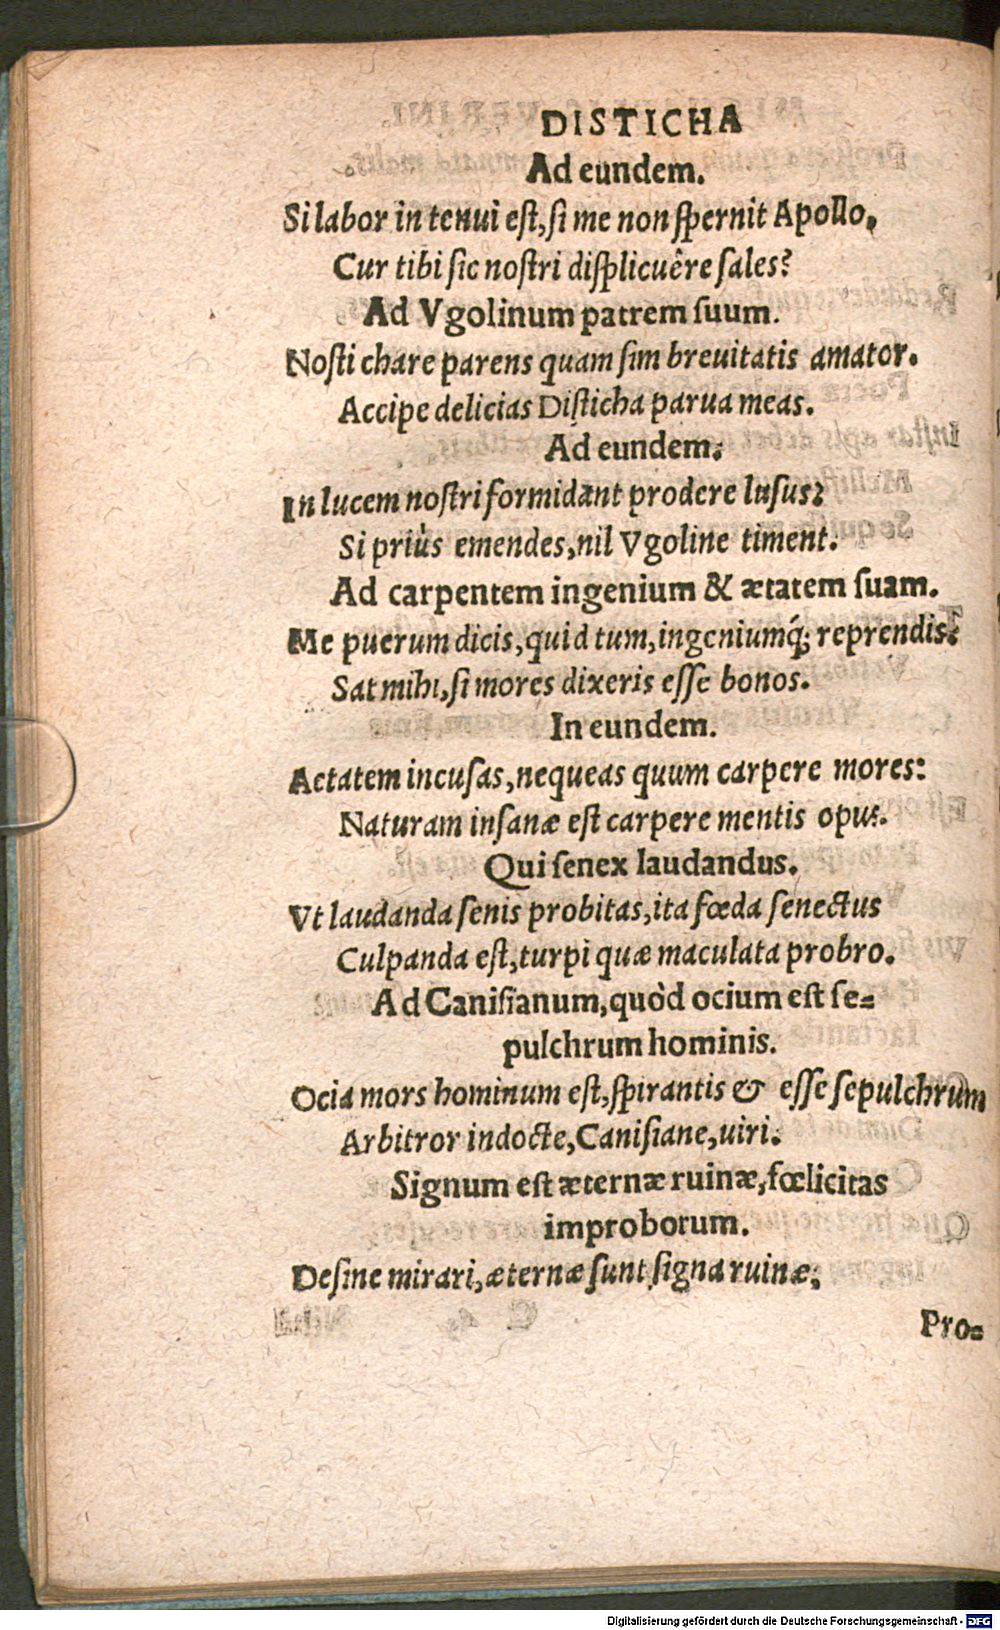 DISTICHA
Ad eundem.
Si labor in tenui est, si me non spernit Apollo,
Cur tibi sic nostri displicuêre sales?
Ad Vgolinum patrem suum.
Nosti chare parens quam sim breuitatis amator.
Accipe delicias Disticha parua meas.
Ad eundem.
In lucem nostri formidant prodere lusus?
Si priùs emendes, nil Vgoline timent.
Ad carpentem ingenium & ætatem suam.
Me puerum dicis, quid tum, ingeniumq́; reprendis?
Sat mihi, si mores dixeris esse bonos.
In eundem.
Aetatem incusas, nequeas quum carpere mores:
Naturam insanæ est carpere mentis opus.
Qui senex laudandus.
Vt laudanda senis probitas, ita fœda senectus
Culpanda est, turpi quæ maculata probro.
Ad Canisianum, quòd ocium est se=
pulchrum hominis.
Ocia mors hominum est, spirantis & esse sepulchrum
Arbitror indocte, Canisiane, uiri.
Signum est æternæ ruinæ, fœlicitas
improborum.
Desine mirari, æternæ sunt signa ruinæ;
Pro=
Digitalisierung gefördert durch die Deutsche Forschungsgemeinschaft - DFG